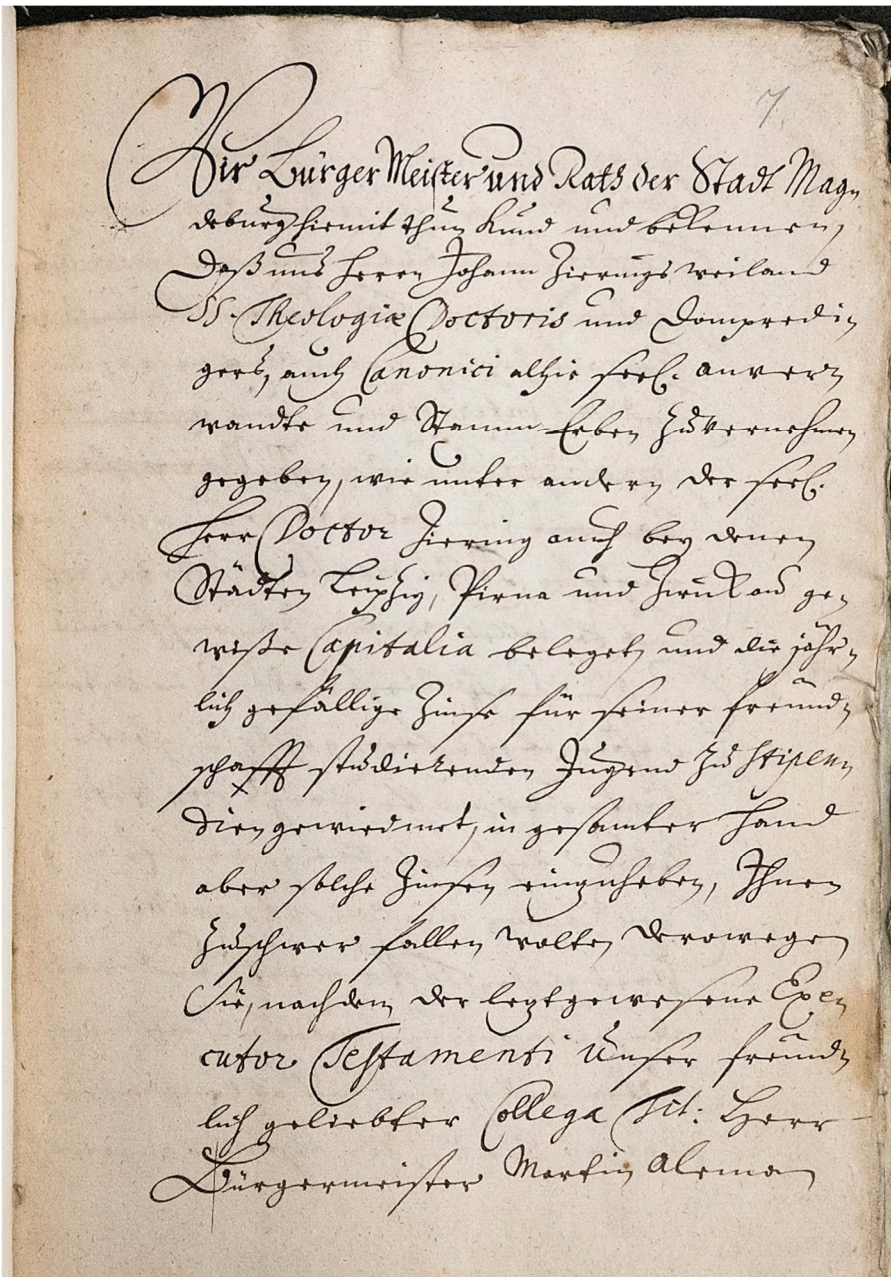 7.
Wir Bürger Meister und Rath der Stadt Mag-
deburg hiemit thun kund und bekennen,
Daß uns Herrn Johann Zierings weiland
SS. Theologiæ Doctoris und Dompredi-
gers, auch Canonici alhie seel. anver-
wandte und Stamm Erben zuvernehmen
gegeben, wie unter andern der seel.
Herr Doctor Ziering auch bey denen
Städten Leipzig, Pirna und Zwickau ge-
wiße Capitalia beleget, und die jähr-
lich gefällige Zinse für seiner freund-
schafft studierenden Jugend zu stipen-
dien gewiedmet, in gesamter Hand
aber solche Zinsen einzuheben, Ihnen
zuschwer fallen wolte, derowegen
Sie, nachdem der leztgewesene Exe-
cutor Testamenti Unser freund-
lich geliebter Collega Tit: Herr
Bürgermeister Martin Aleman